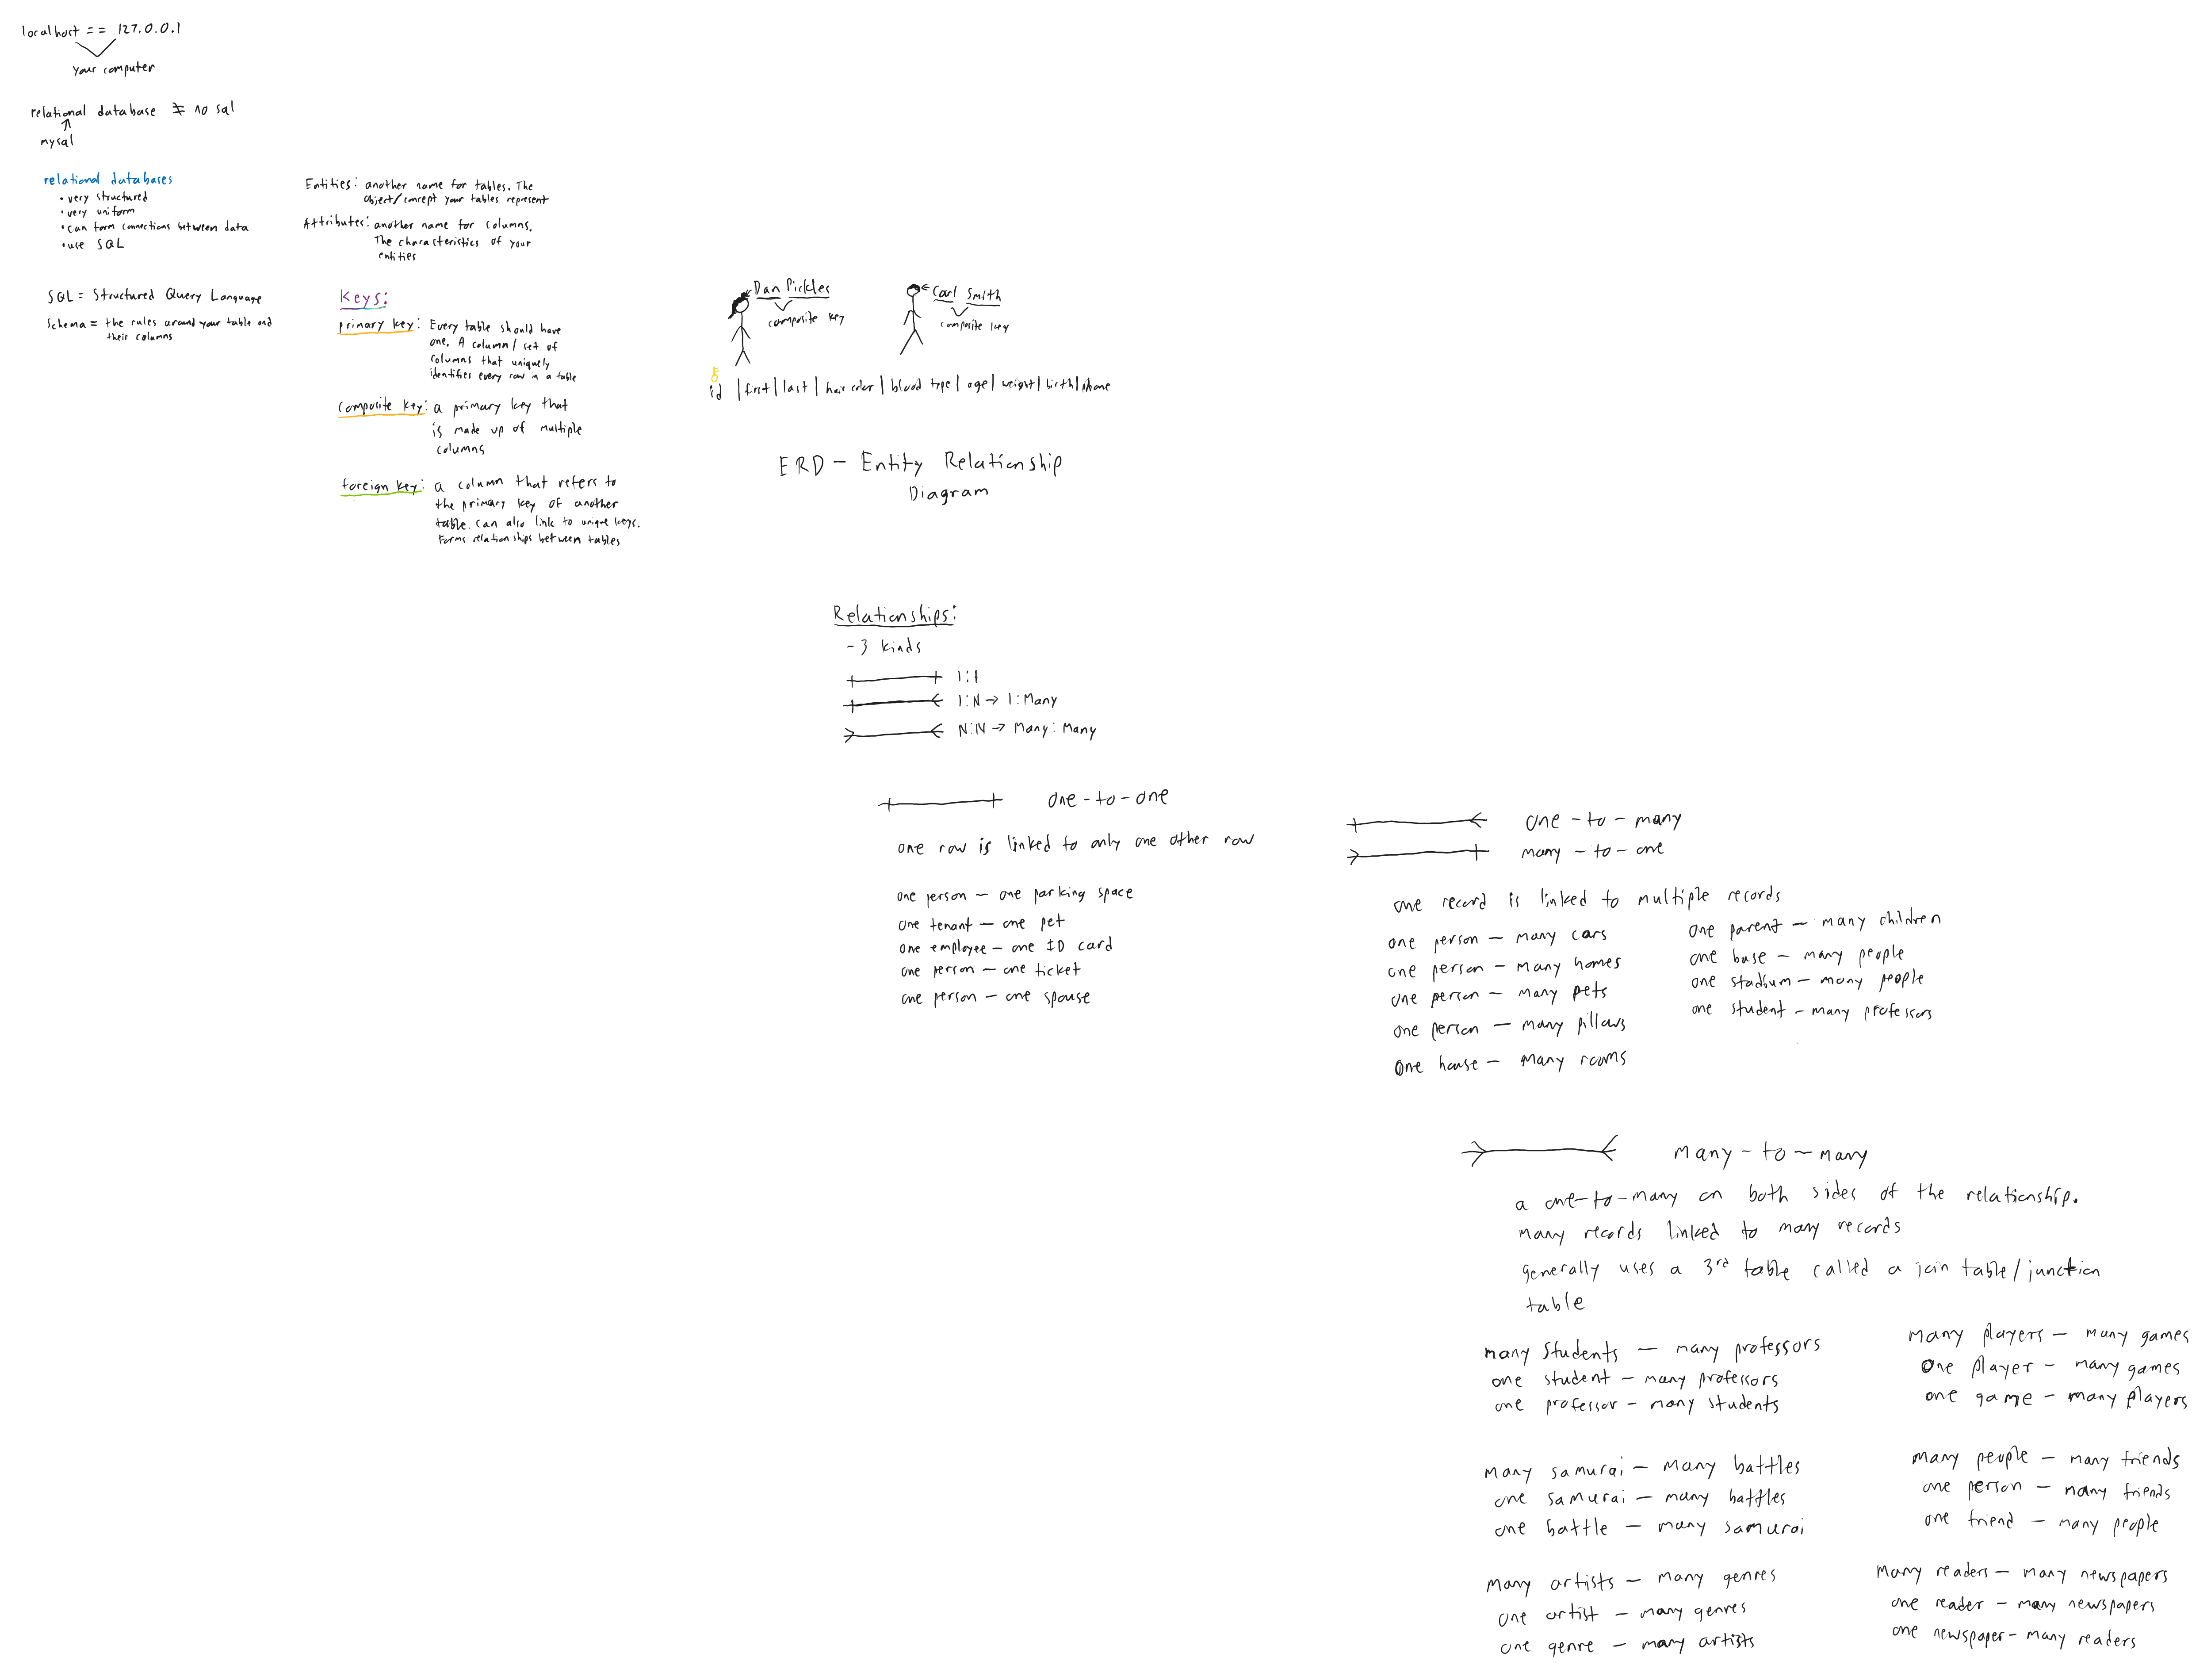 localhost == 127.0.0.1
your computer
relational database ≠ no sql
mysql
relational databases
• very structured
• very uniform
• can form connections between data
• use SQL
SQL = Structured Query Language
Schema = the rules around your table and
their columns
Entities: another name for tables. The
object/concept your tables represent
Attributes: another name for columns.
The characteristics of your
entities
Keys:
primary key: Every table should have
one. A column/set of
columns that uniquely
identifies every row in a table
Composite key: a primary key that
is made up of multiple
columns
foreign key: a column that refers to
the primary key of another
table. can also link to unique keys.
Forms relationships between tables
Dan Pickles
composite key
Carl Smith
composite key
id | first | last | hair color | blood type | age | weight | birth | phone
ERD - Entity Relationship
Diagram
Relationships:
- 3 kinds
1:1
1:N → 1:Many
N:N → Many:Many
one-to-one
one row is linked to only one other row
one person - one parking space
one tenant - one pet
one employee - one ID card
one person - one ticket
one person - one spouse
one-to-many
many-to-one
one record is linked to multiple records
one person - many cars
one person - many homes
one person - many pets
one person - many pillows
one house - many rooms
one parent - many children
one base - many people
one stadium - many people
one student - many professors
many-to-many
a one-to-many on both sides of the relationship.
many records linked to many records
generally uses a 3rd table called a join table/junction
table
many students - many professors
one student - many professors
one professor - many students
many players - many games
one player - many games
one game - many players
many samurai - many battles
one samurai - many battles
one battle - many samurai
many people - many friends
one person - many friends
one friend - many people
many artists - many genres
one artist - many genres
one genre - many artists
many readers - many newspapers
one reader - many newspapers
one newspaper - many readers